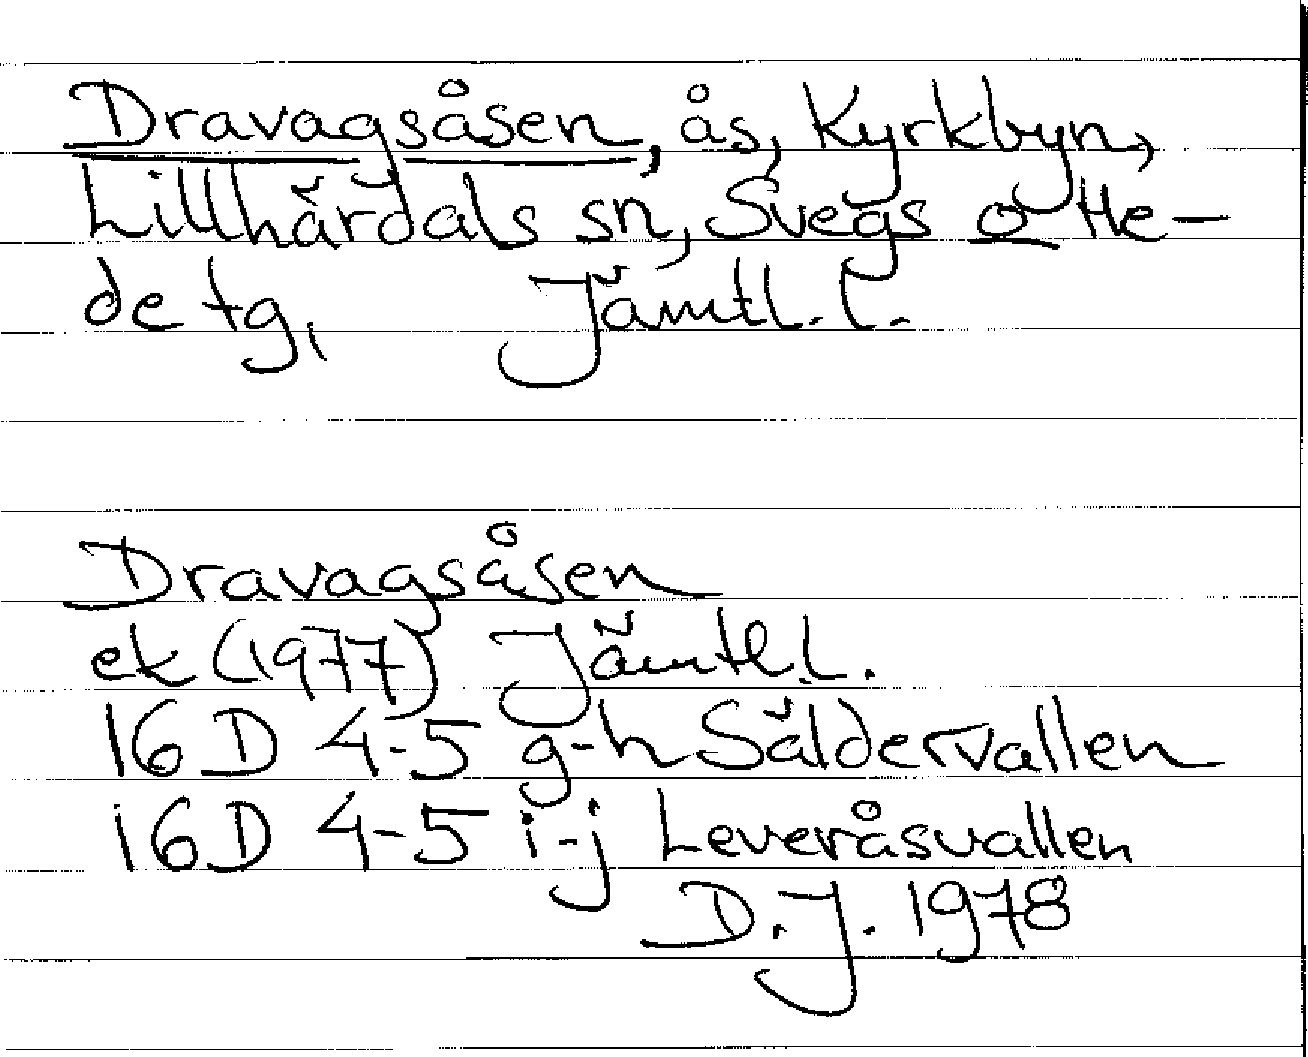 Dravagsåsen, ås, Kyrkbyn,
Lillhärdals sn, Svegs o He-
de tg, Jämtl. l.
Dravagsåsen
ek (1977) Jämtl. l.
16 D 4-5 g-h Säldervallen
16 D 4-5 i-j Leveråsvallen
D. J. 1978